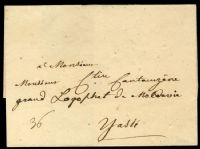 a Monsieur
Monsieur C^tin Cantacuzène
grand Logophet de Moldavie
36
Yassi